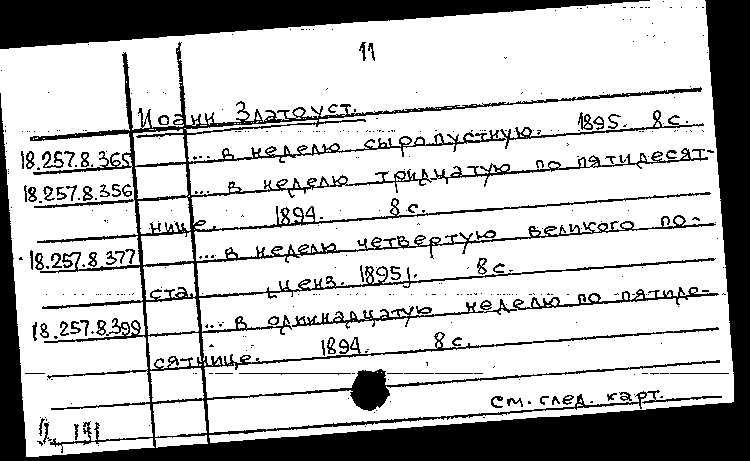 11
Иоанн Златоуст.
18.257.8.365 ... в неделю сыропустную. 1895. 8 с.
18.257.8.356 ... в неделю тридцатую по пятидесят-
нице. 1894. 8 с.
18.257.8.377 ... в неделю четвертую великого по-
ста. [ценз. 1895]. 8 с.
18.257.8.399 ... в одиннадцатую неделю по пятиде-
сятнице. 1894. 8 с.
см. след. карт.
191